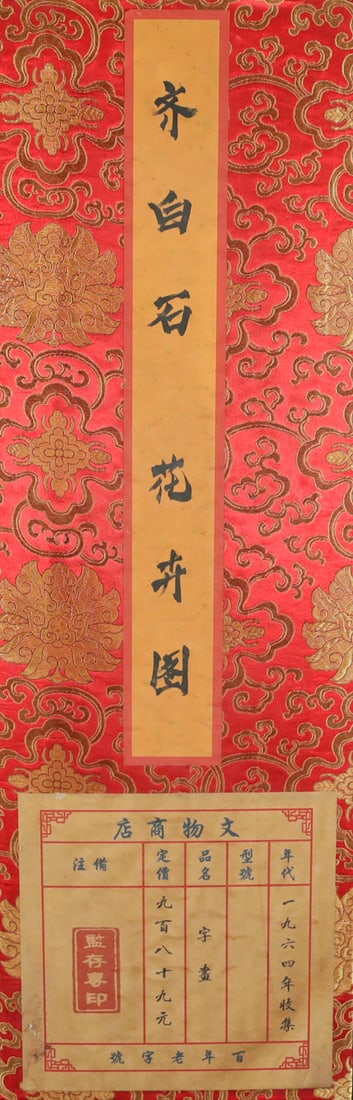 齐白石 花卉图
文物商店
年代
一九六四年收集
型號
品名
字畫
定價
九百八十九元
備注
百年老字號